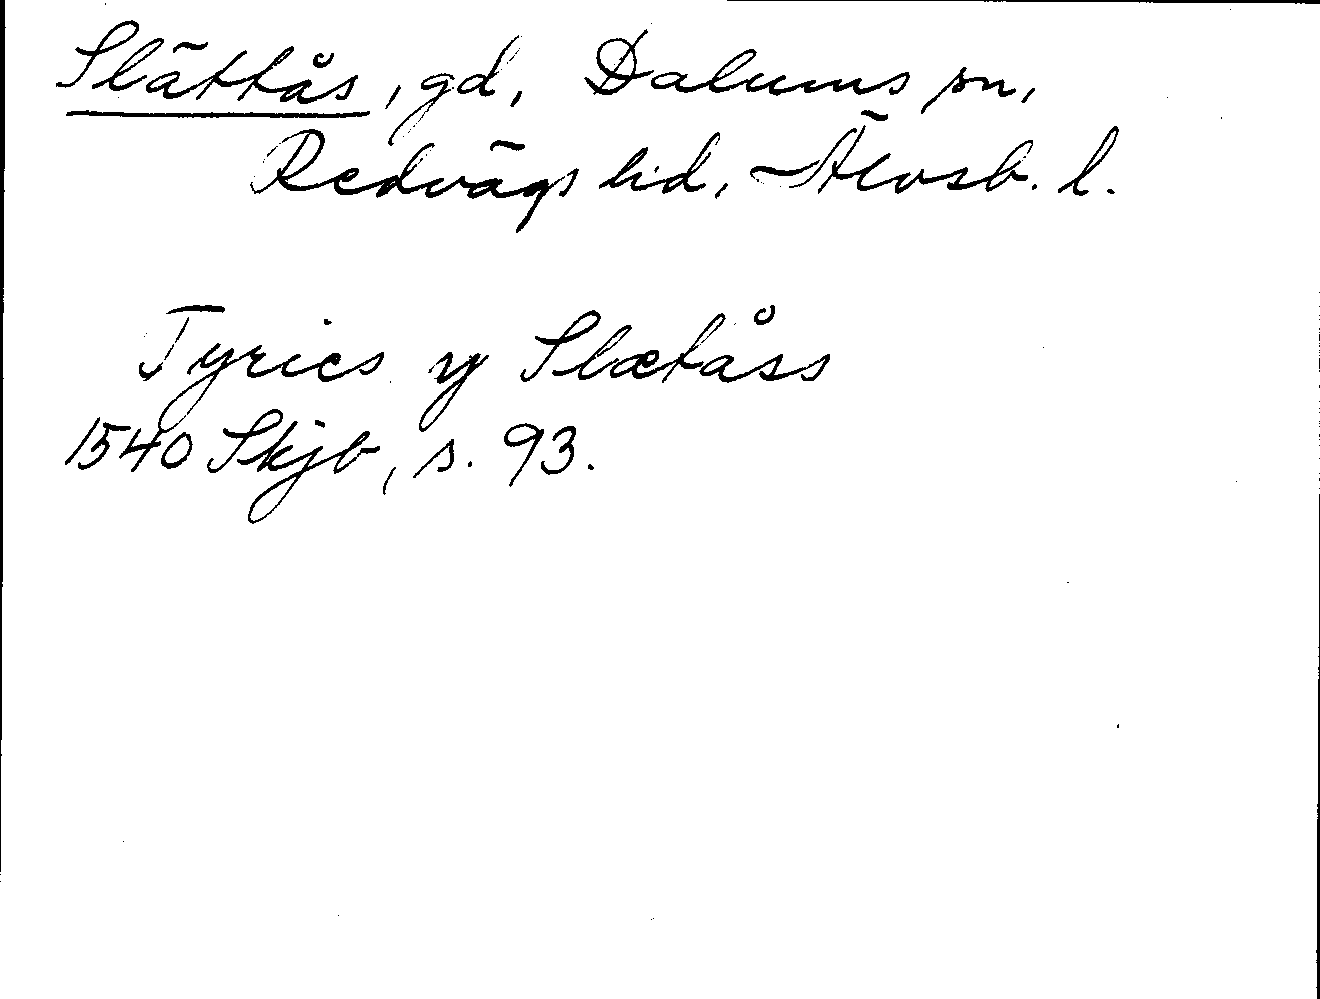 Slättås, gd, Dalums sn,
Redvägs hd, Älvsb. l.
Tyrics y Slætåss
1540 Skjb, s. 93.